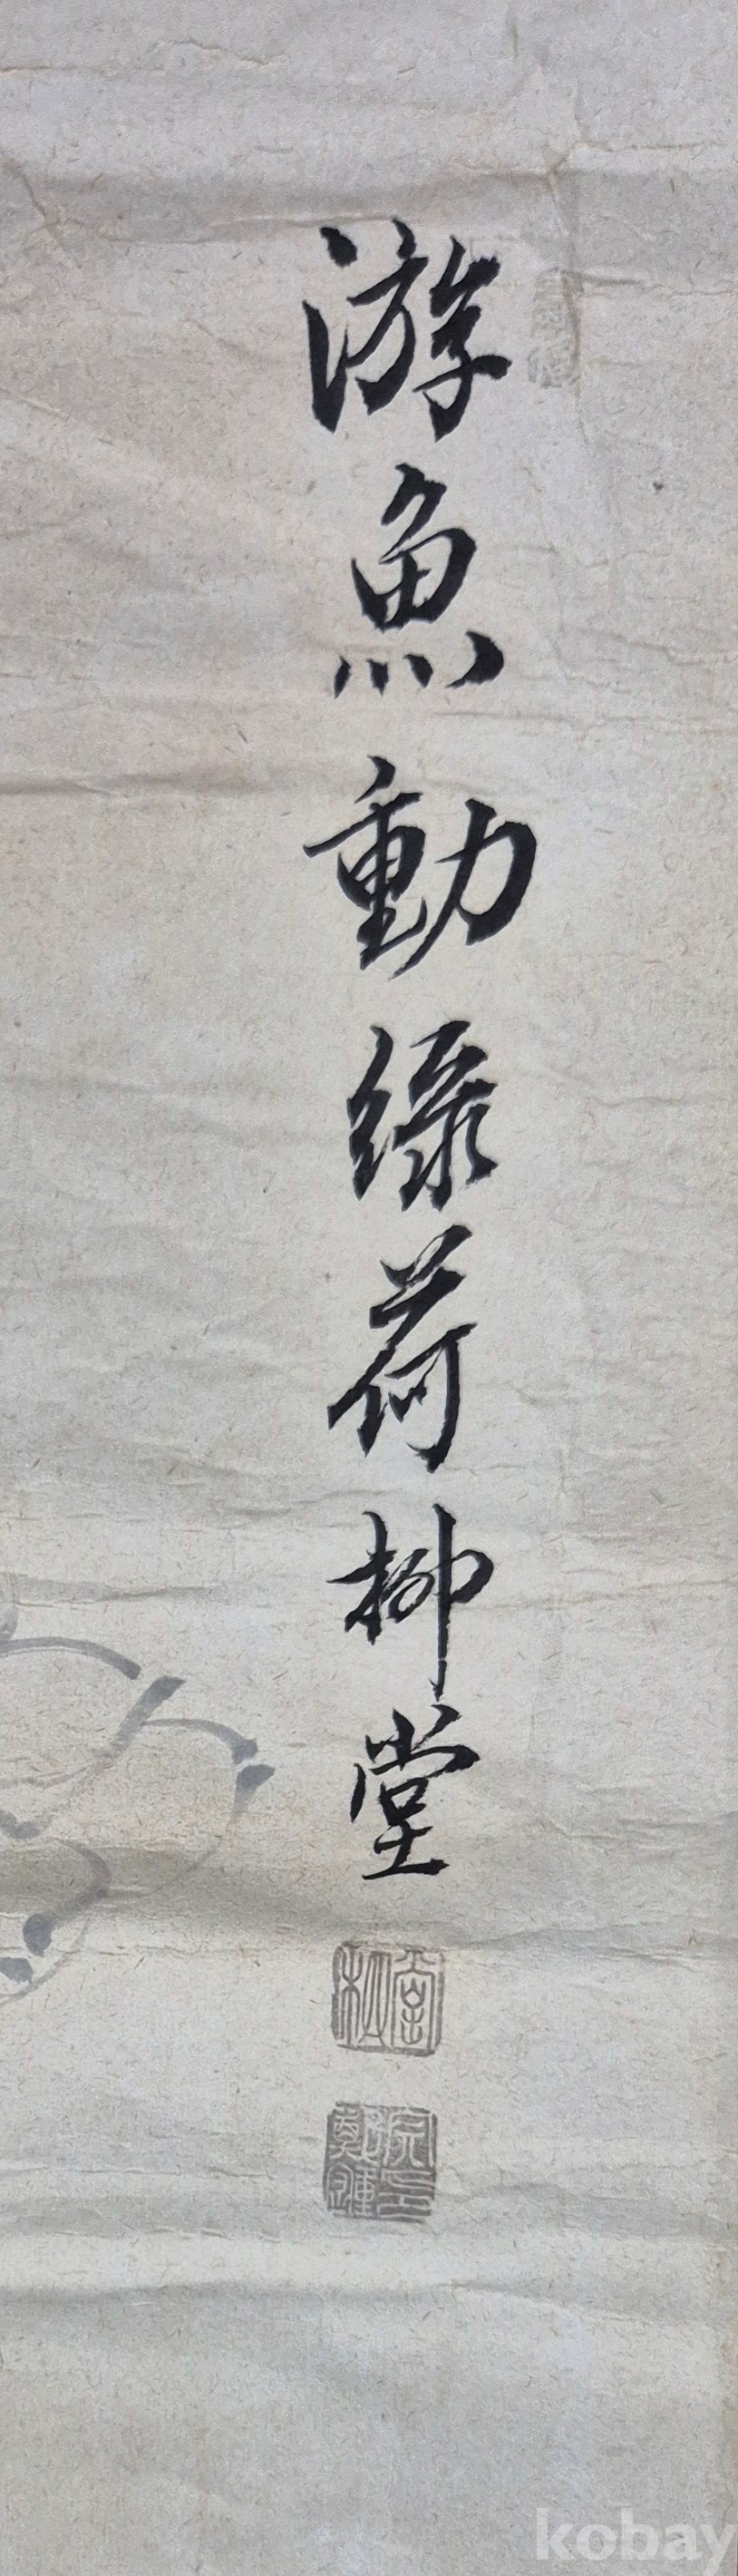 游魚動緑荷柳堂
kobay